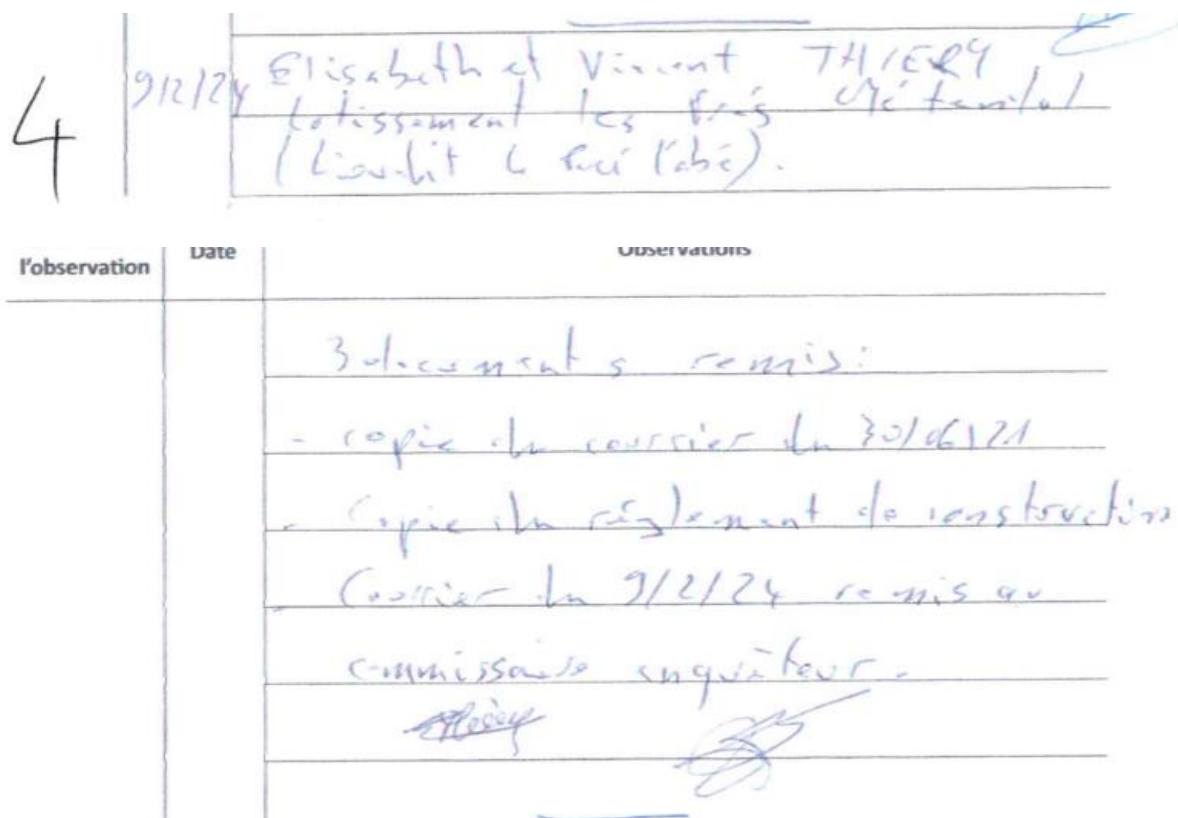 4
9/2/24
Elisabeth et Vincent THIERY
Lotissement les Prés
(Lieudit le l'abé).
l'observation
Date
Observations
3 documents remis:
- copie du courrier du 30/06/21
- Copie du règlement de construction
- Courrier du 9/2/24 remis au
commissaire enquêteur.